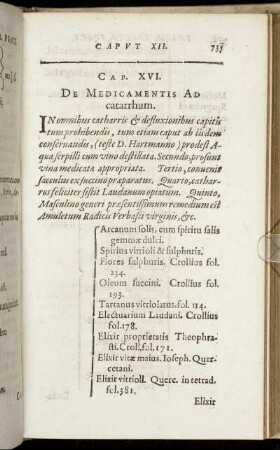 CAPVT XII. 735
CAP. XVI.
DE MEDICAMENTIS AD
catarrhum.
IN omnibus catharris & defluxionibus capitis
tum prohibendis, tum etiam caput ab iisdem
conservandis, (teste D. Hartmanno) prodest A-
qua serpilli cum vino destillata. Secundo, prosunt
vina medicata appropriata. Tertio, convenit
sacculus ex succino præparatus. Quarto, cathar-
ros feliciter sistit Laudanum opiatum. Quinto,
Masculino generi præsentissimum remedium est
Amuletum Radicis Verbasci virginis, &c.
Arcanum solis, cum spiritu salis
gemmæ dulci.
Spiritus vitrioli & sulphuris.
Flores sulphuris. Crollius fol.
234.
Oleum succini. Crollius fol.
193.
Tartarus vitriolatus. fol. 114.
Electuarium Laudani. Crollius
fol. 178.
Elixir proprietatis Theophra-
sti. Croll. fol. 171.
Elixir vitæ maius. Ioseph. Quer-
cetani.
Elixir vitrioli. Querc. in tetrad.
fol. 381.
Elixir